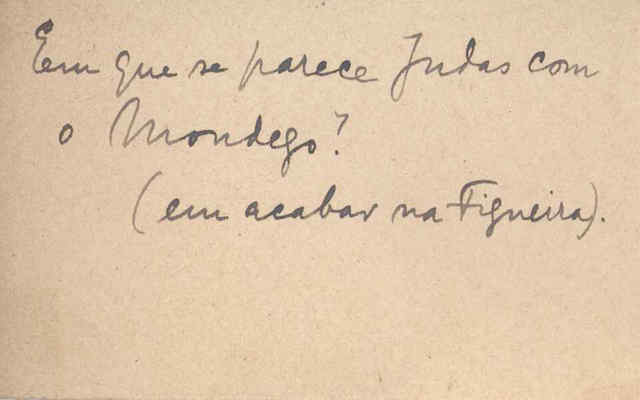 Em que se parece Judas com
o Mondego?
(em acabar na Figueira).